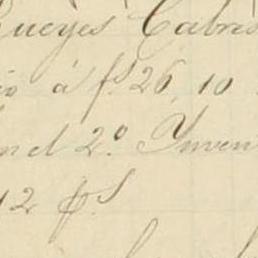 ueyes Cabre
io á f.s 26,10
en el 2.º Inven
12 p.s